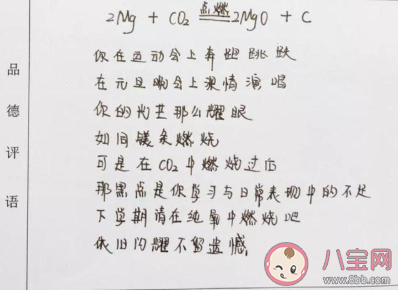 点燃
2Mg + CO₂ = 2MgO + C
你在运动会上奔跑跳跃
在元旦晚会上深情演唱
你的光芒那么耀眼
如同镁条燃烧
可是在CO₂中燃烧过后
那黑点是你学习与日常表现中的不足
下学期请在纯氧中燃烧吧
依旧闪耀不留遗憾。
品德评语
八宝网
www.8bb.com